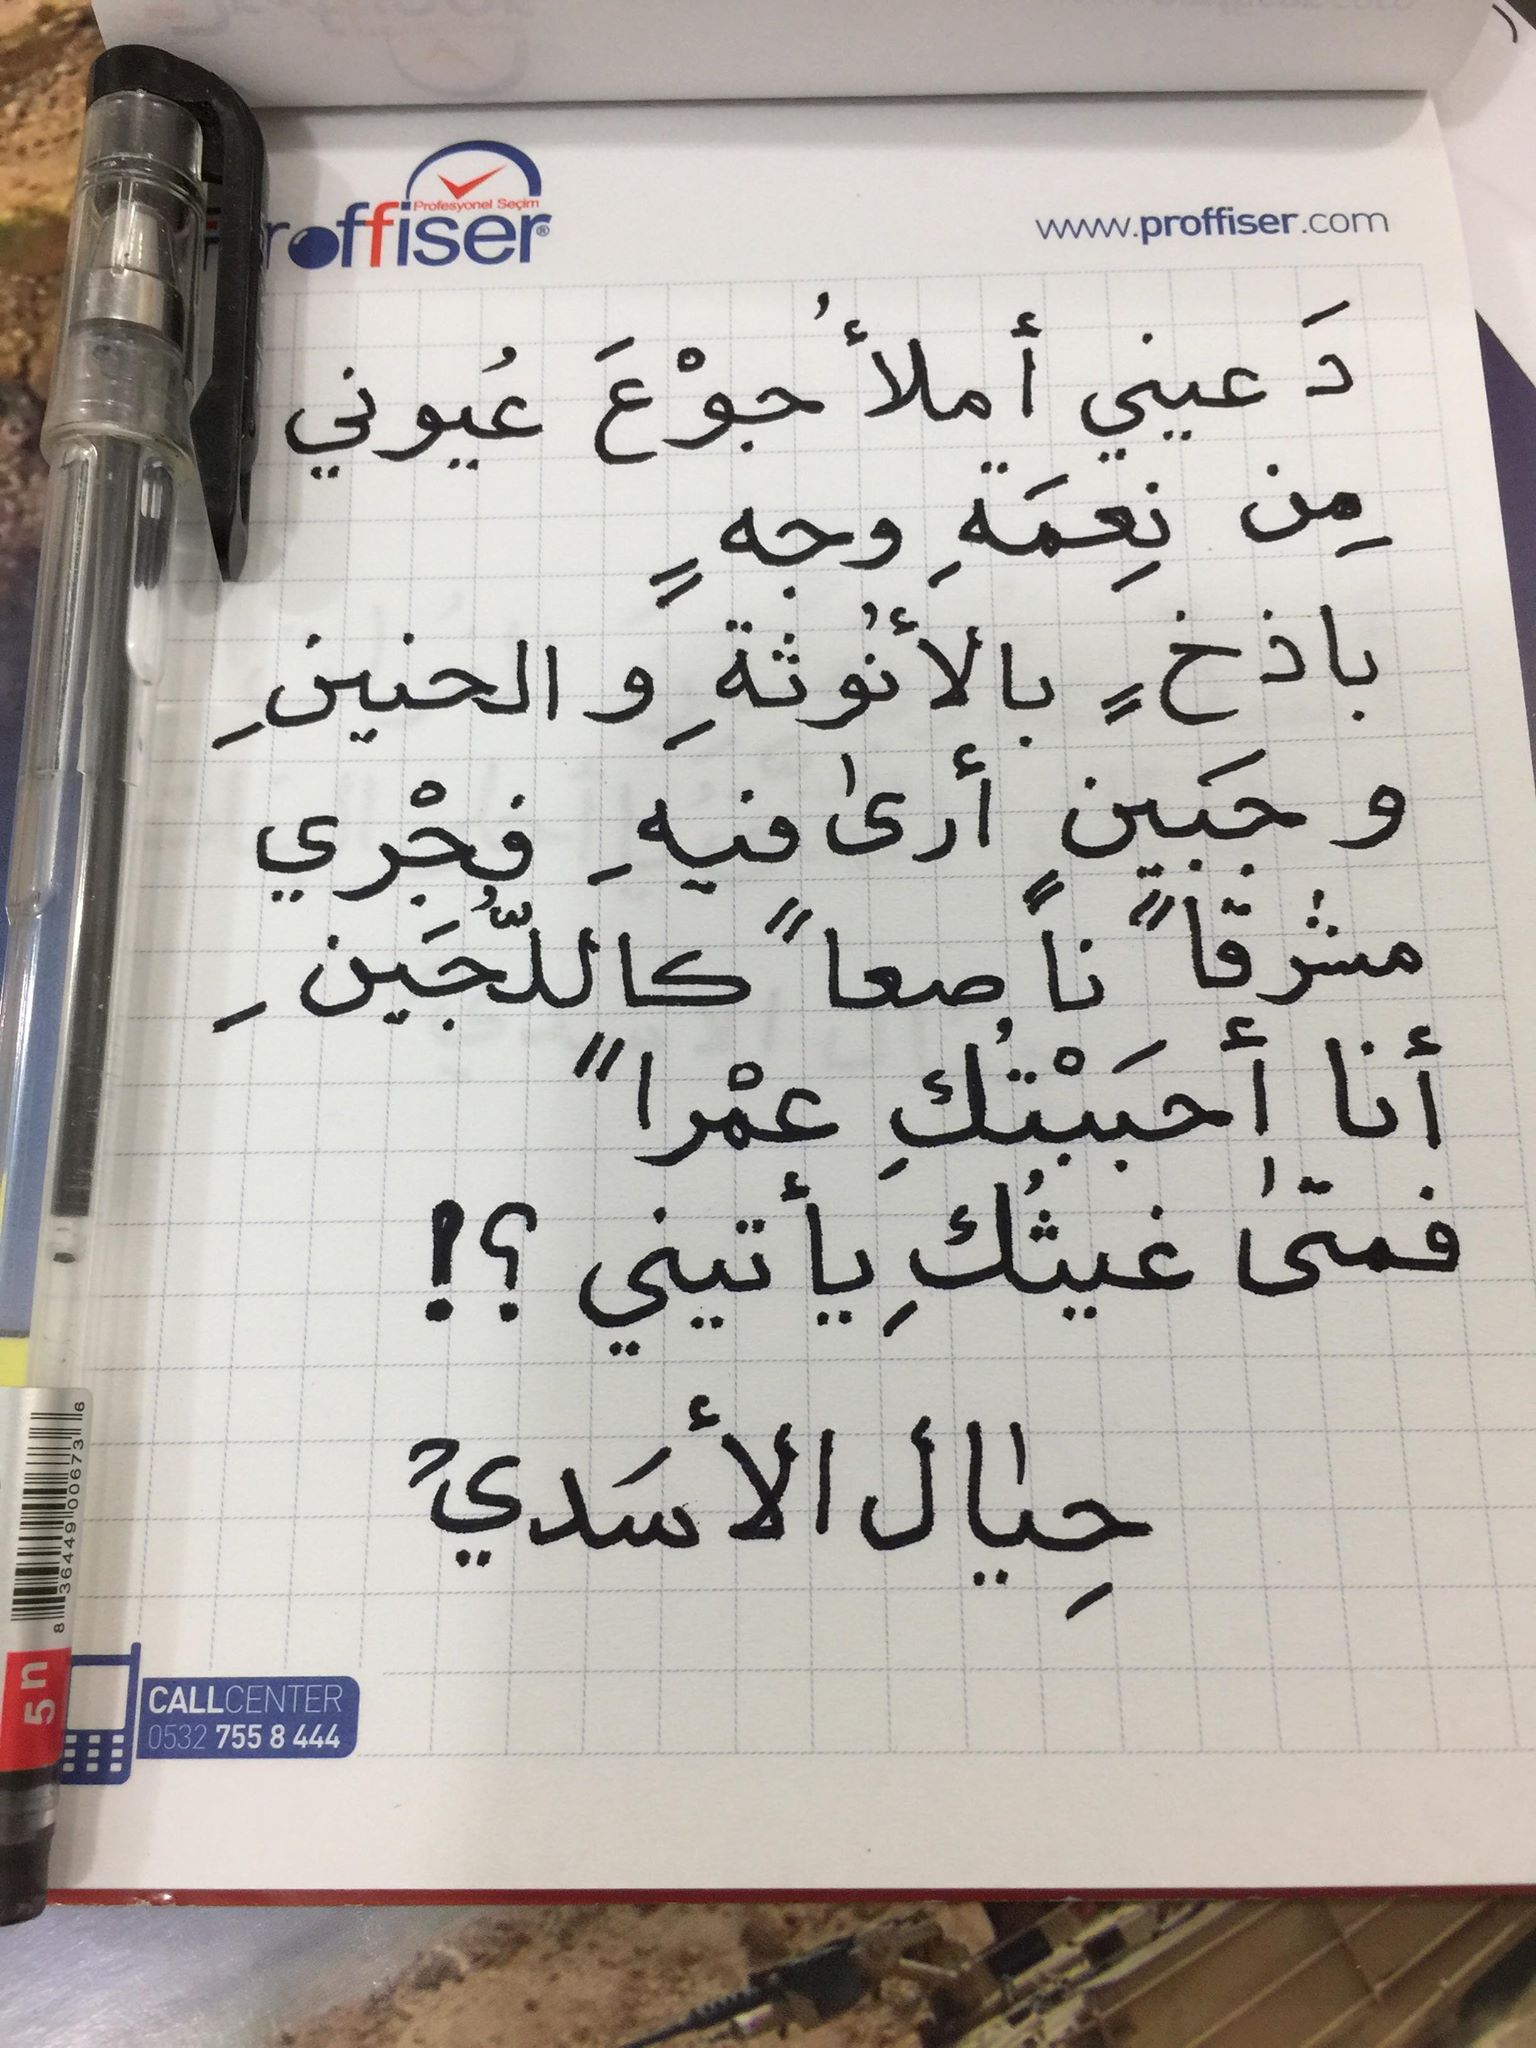 Profesyonel Seçim
proffiser®
www.proffiser.com
دَعيني أملأُ جوْعَ عُيوني
مِن نِعِمَةِ وجهٍ
باذخٍ بالأنُوثةِ و الحنينِ
و جَبَينٍ أرىٰ فيهِ فجْري
مشرقاً ناصعاً كاللُّجَينِ
أنا أحبَبْتُكِ عمْراً
فمتىٰ غيثُكِ يأتيني ؟!
حِيٰال الأسَدي
CALLCENTER
0532 755 8 444
8 36449 00673 6
5n